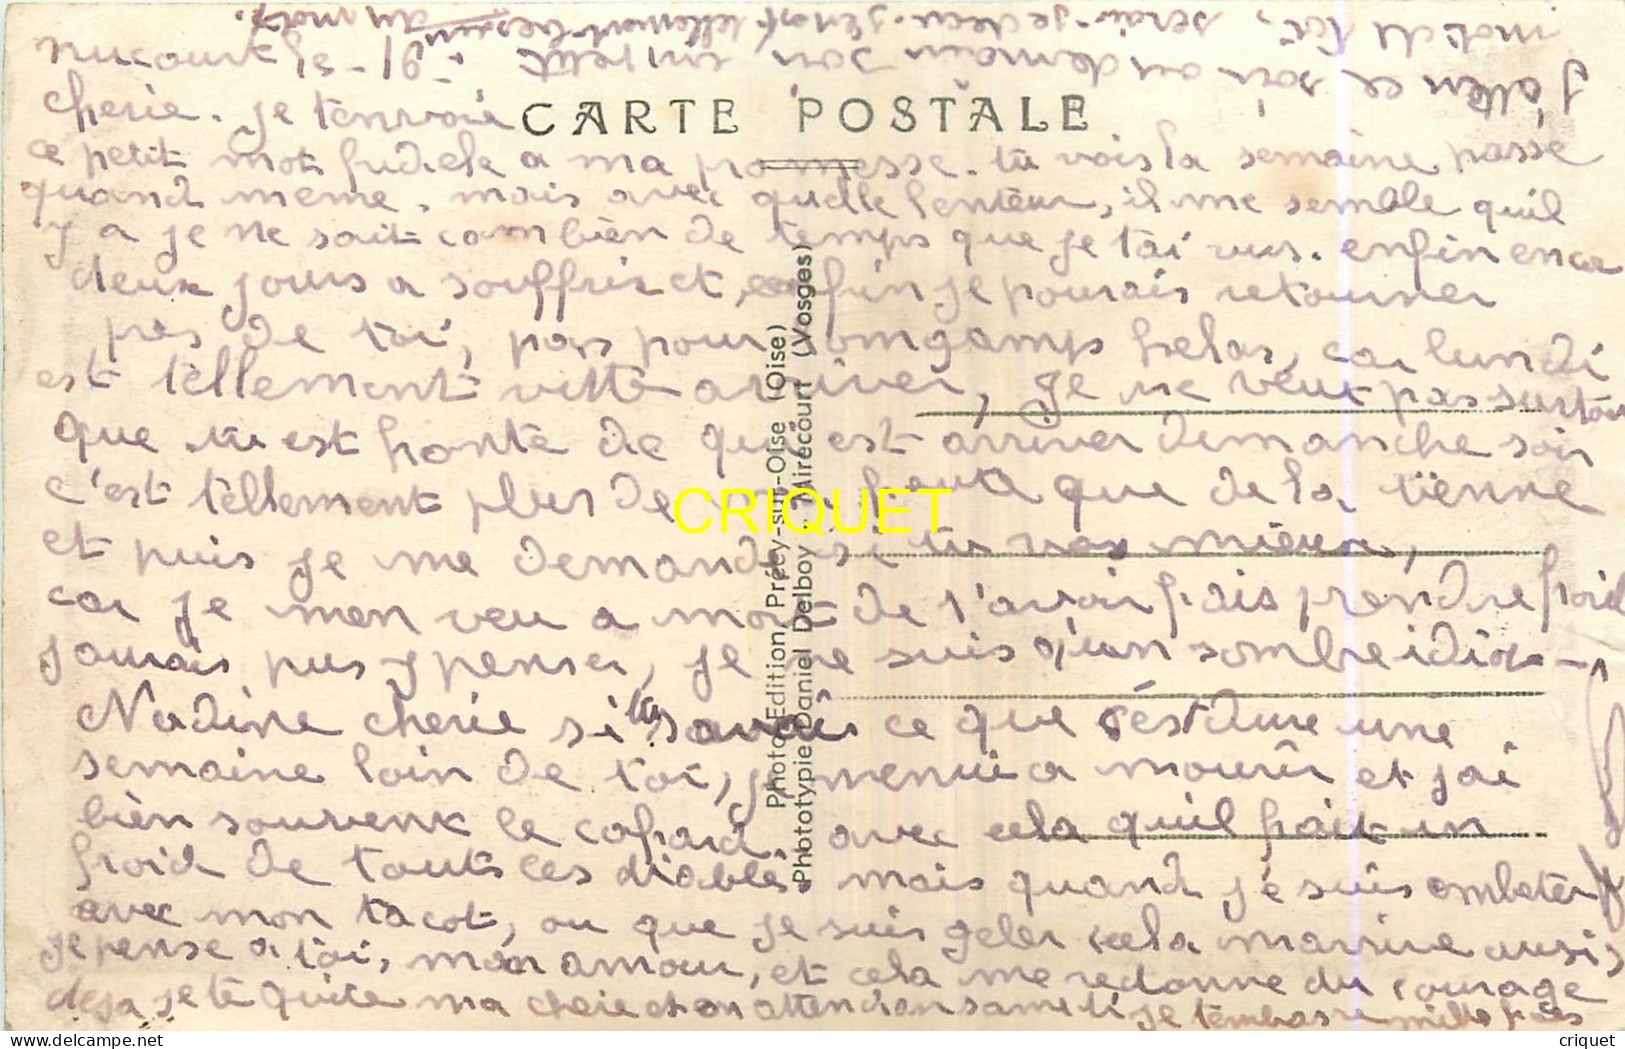 Nucourt le 31-1-9
cherie. je tenvoie
CARTE POSTALE
ce petit mot fidele a ma promesse. tu vois la semaine passe
quand meme, mais avec quelle lenteur, il me semble quil
y a je ne sait combien de temps que je tai vus. enfin encor
deux jours a souffrir et enfin je pourais retourner
pres de toi, pas pour longtamps helas, car lundi
est tellement vitte arriver, je ne veut pas surtou
que tu est honte de qui est arriver dimanche soir
c'est tellement plus de ma faute que de la tienne
et puis je me demande si tu vas mieux,
car je men veu a mort de t'avoir fais prendre froid
jamais pus y penser, je ne suis q'un sombre idio
Nadine cherie si tu savais ce que s'est dure une
semaine loin de toi, je menui a mourir et jai
bien souvent le cafard. avec cela quil fait un
froid de touts les diables mais quand je suis embeter
avec mon tacot, ou que je suis geler cela marrive ausis
je pense a toi, mon amour, et cela me redonne du courage
deja je te quite ma cherie et on attendion samedi je tembasse mille fois
J'atten ce soir ou demain soir un petit
mot de toi, serais-je decu. j'en est tellement besoin du mot.
Photo-Edition, Précy-sur-Oise (Oise)
Phototypie Daniel Delboy - Mirecourt (Vosges)
CRIQUET
criquet